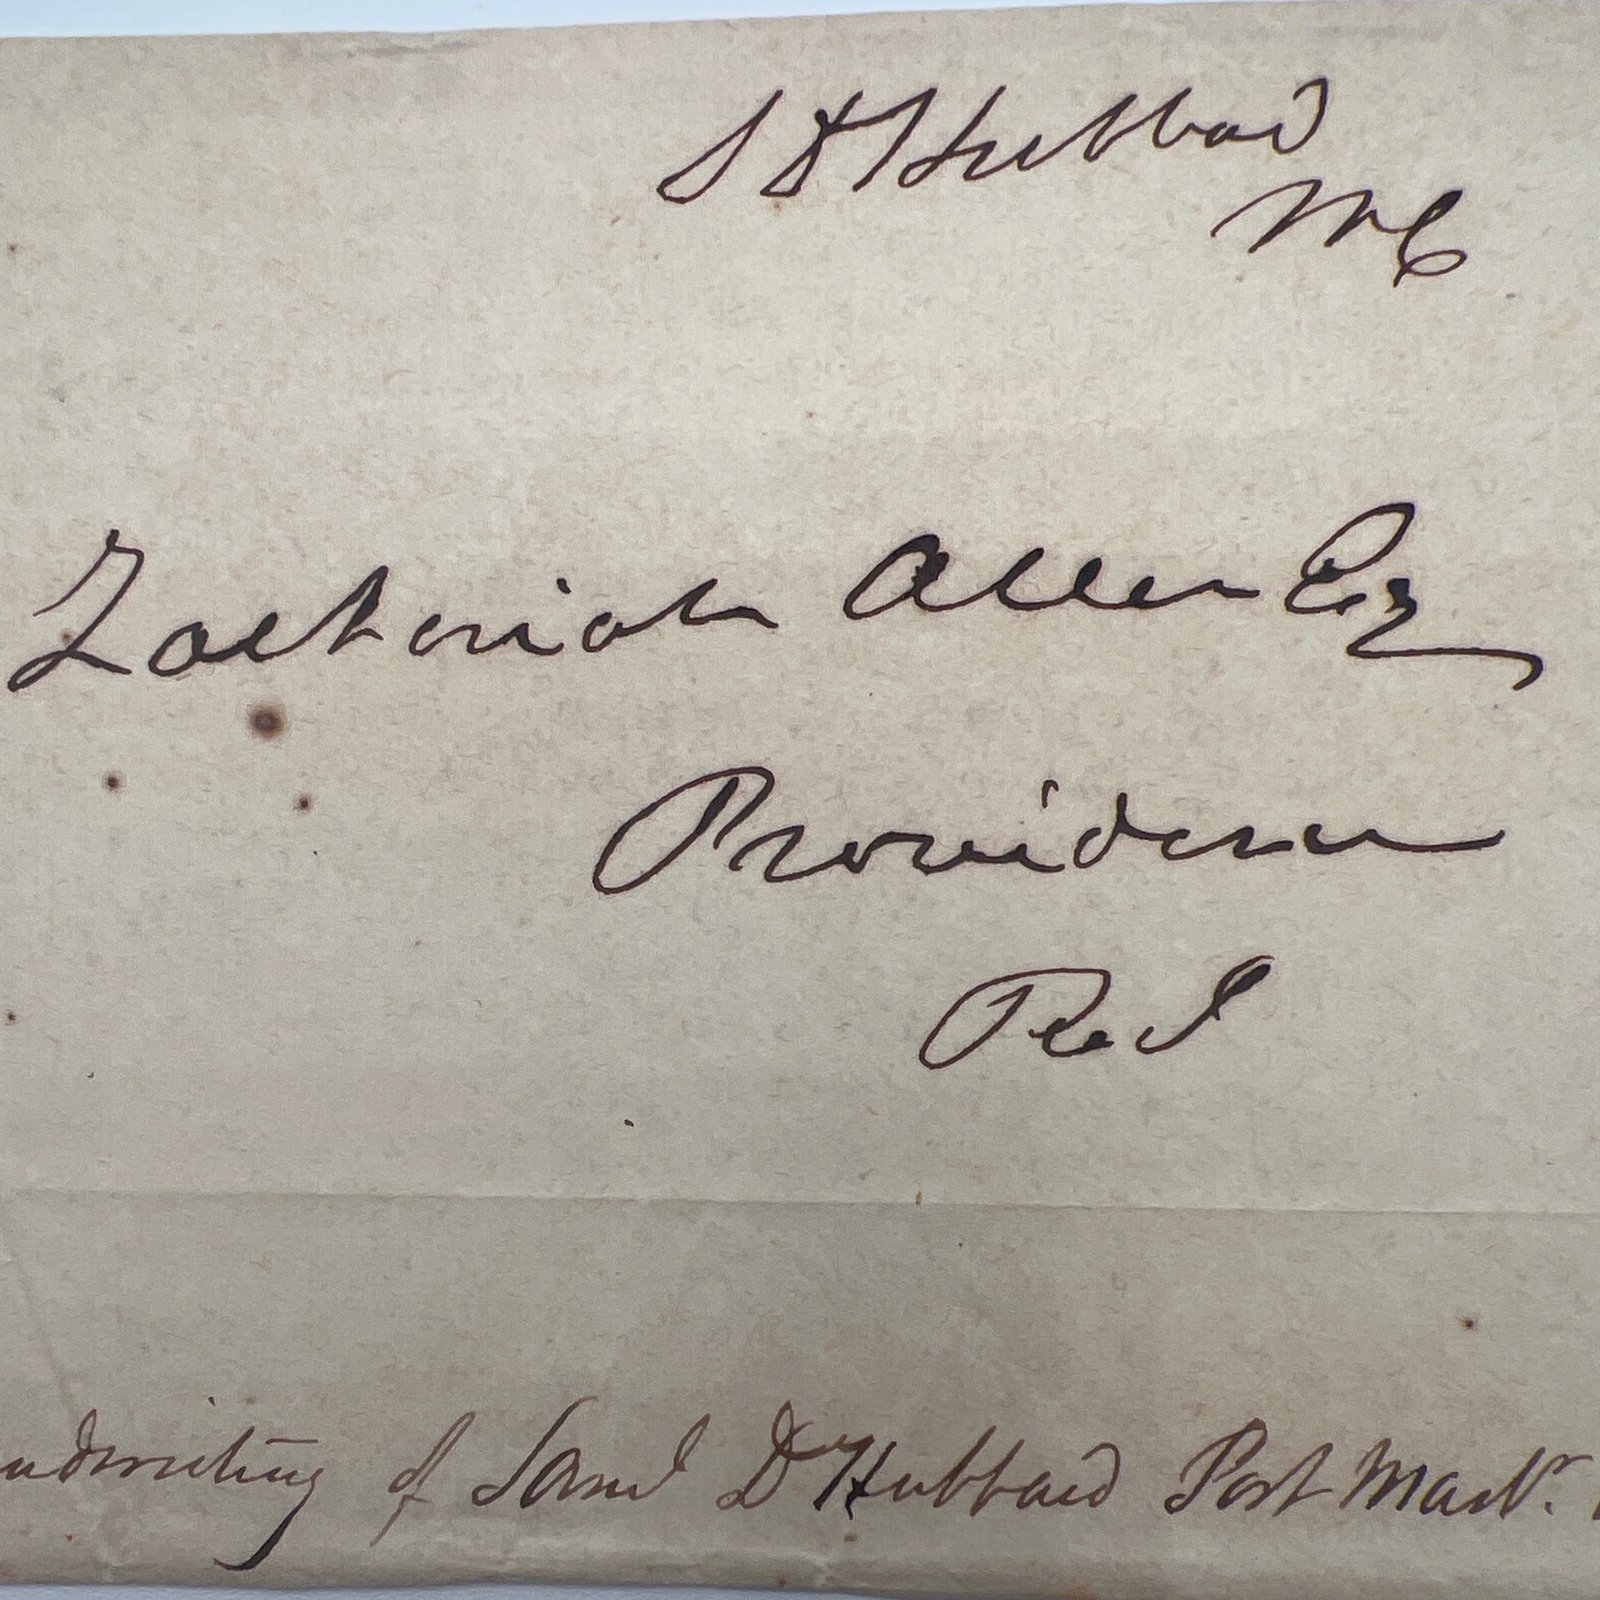 S D Hubbard
MC
Zachariah Allen Esq
Providence
R. I
andwriting of Saml D Hubbard Post Mastr.